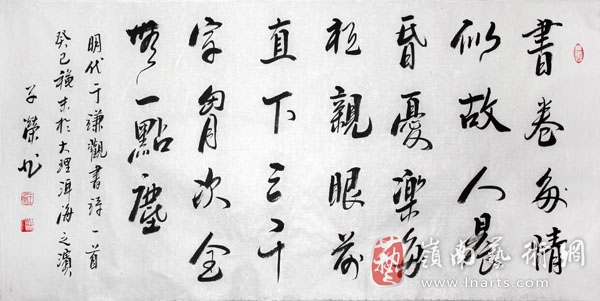 書卷多情
似故人晨
昏憂樂每
相親眼前
直下三千
字胸次全
無一點塵
明代于謙觀書詩一首
癸巳穐末於大理洱海之濱
子榮书
嶺南藝術網
www.lnarts.com